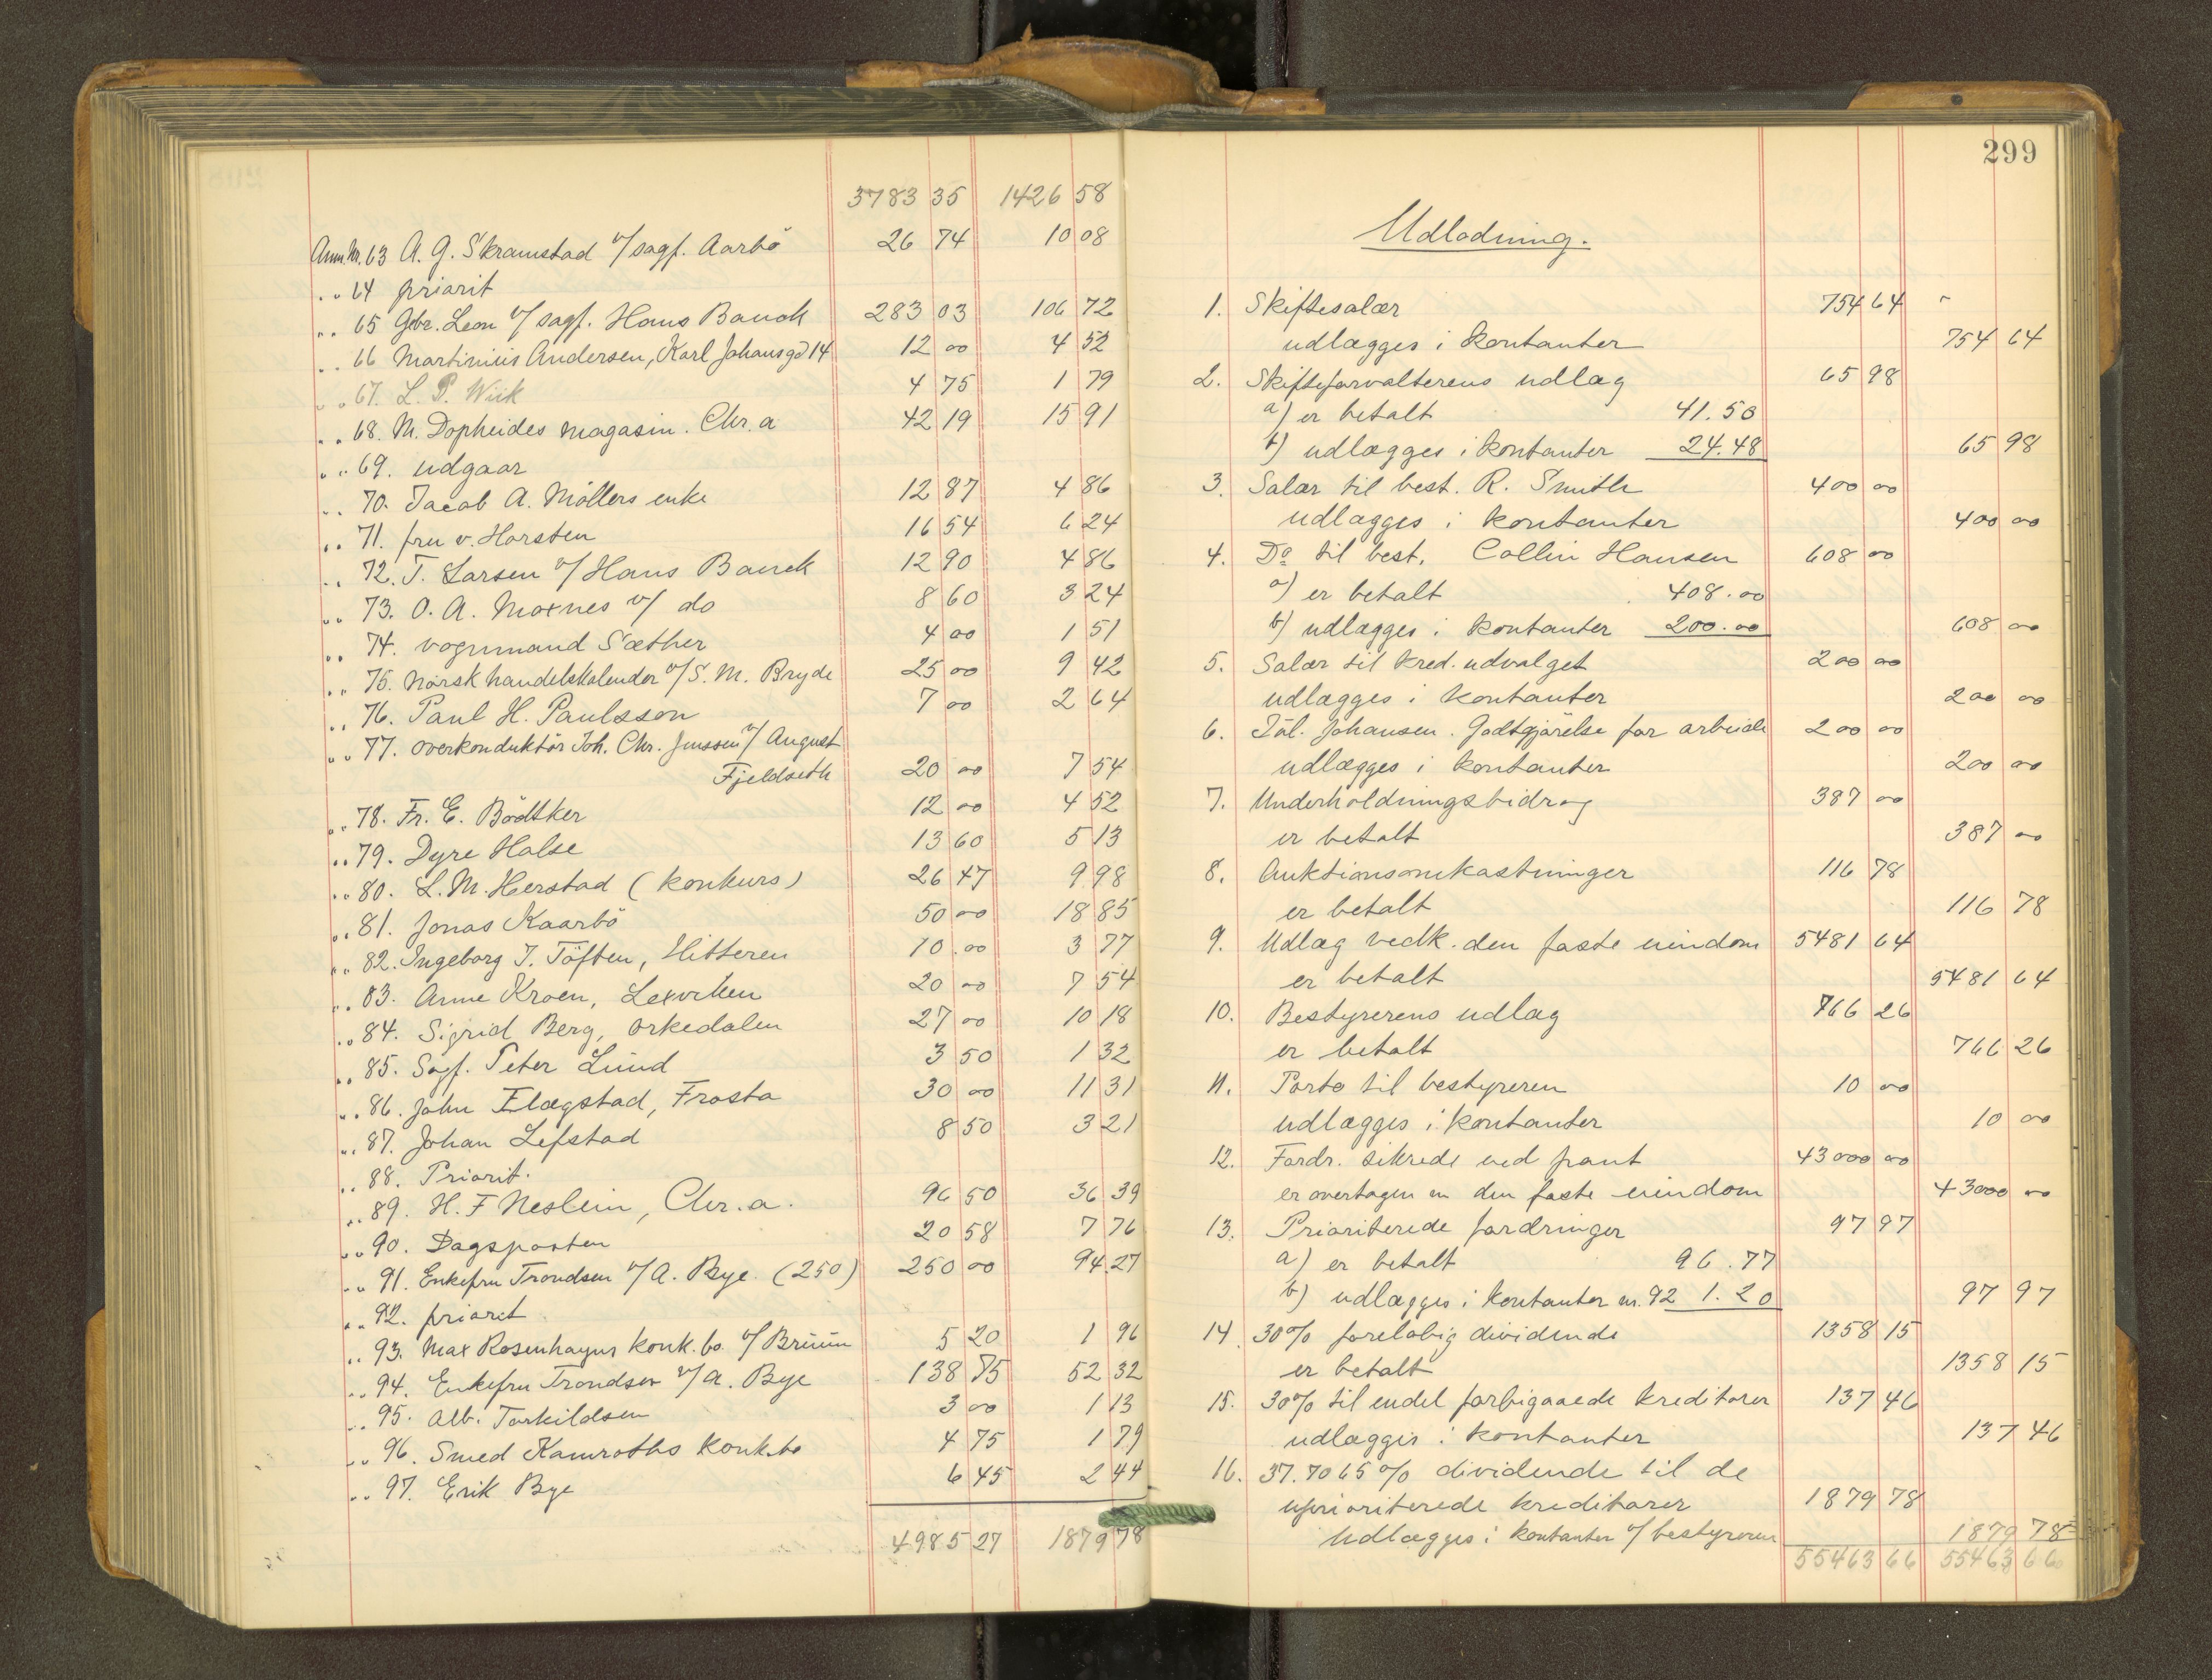 3783 35 1426 58
Anm. Nr. 63 A. G. Skramstad v/ sagf. Aarbö 26 74 10 08
" " 64 priorit
" " 65 Gebr. Leon v/ sagf. Hans Bauck 283 03 106 72
" " 66 Martinius Andersen, Karl Johansgd 14 12 00 4 52
" " 67. L. P. Wiik 4 75 1 79
" " 68. M. Dopheides magasin. Chr. a 42 19 15 91
" " 69. udgaar
" " 70. Jacob A. Möllers enke 12 87 4 86
" " 71. fru v. Horsten 16 54 6 24
" " 72. T. Larsen v/ Hans Bauck 12 90 4 86
" " 73. O. A. Moxnes v/ do 8 60 3 24
" " 74. vognmand Sæther 4 00 1 51
" " 75. Norsk handelskalender v/ S. M. Bryde 25 00 9 42
" " 76. Paul H. Paulsson 7 00 2 64
" " 77. overkonduktör Joh. Chr. Jenssen v/ August
Fjeldseth 20 00 7 54
" " 78. Fr. E. Bödtker 12 00 4 52
" " 79. Dyre Halse 13 60 5 13
" " 80. L. M. Herstad (konkurs) 26 47 9 98
" " 81. Jonas Kaarbö 50 00 18 85
" " 82. Ingeborg J. Töften, Hitteren 10 00 3 77
" " 83. Anne Kroen, Lexviken 20 00 7 54
" " 84. Sigrid Berg, Orkedalen 27 00 10 18
" " 85. Sagf. Peter Lund 3 50 1 32
" " 86. John Flægstad, Frosta 30 00 11 31
" " 87. Johan Lefstad 8 50 3 21
" " 88. Priorit.
" " 89. H. F Neslein, Chr. a. 96 50 36 39
" " 90. Dagsposten 20 58 7 76
" " 91. Enkefru Trondsen v/ A. Bye (250) 250 00 94.27
" " 92. priorit
" " 93. Max Rosenhayns konk. bo v/ Bruun 5 20 1 96
" " 94. Enkefru Trondsen v/ A. Bye 138 75 52 32
" " 95. Alb. Torkildsen 3 00 1 13
" " 96. Smed Kamroths konk. bo 4 75 1 79
" " 97. Erik Bye 6 45 2 44
4985 27 1879 78
299
Udlodning.
1. Skiftesalær 754 64 "
udlægges i kontanter 754 64
2. Skifteforvalterens udlæg 65 98
a) er betalt 41.50
b) udlægges i kontanter 24.48 65 98
3. Salær til best. R. Smith 400 00
udlægges i kontanter 400 00
4. Do til best. Collin Hansen 608 00
a) er betalt 408.00
b) udlægges i kontanter 200.00 608 00
5. Salær til kred. udvalget 200 00
udlægges i kontanter 200 00
6. Jul. Johansen. Godtgjörelse for arbeide 200 00
udlægges i kontanter 200 00
7. Underholdningsbidrag 387 00
er betalt 387 00
8. Auktionsomkostninger 116 78
er betalt 116 78
9. Udlæg vedk. den faste eiendom 5481 64
er betalt 5481 64
10. Bestyrerens udlæg 766 26
er betalt 766 26
11. Porto til bestyreren 10 00
udlægges i kontanter 10 00
12. Fordr. sikrede ved pant 43000 00
er overtagen m den faste eiendom 43000 00
13. Prioriterede fordringer 97 97
a) er betalt 96.77
b) udlægges i kontanter nr. 92 1.20 97 97
14 30% foreløbig dividende 1358 15
er betalt 1358 15
15. 30% til endel forbigaaede kreditorer 137 46
udlægges i kontanter 137 46
16. 37.7065% dividende til de
uprioriterede kreditorer 1879 78
Udlægges i kontanter v/ bestyreren 1879 78
55463 66 55463 66